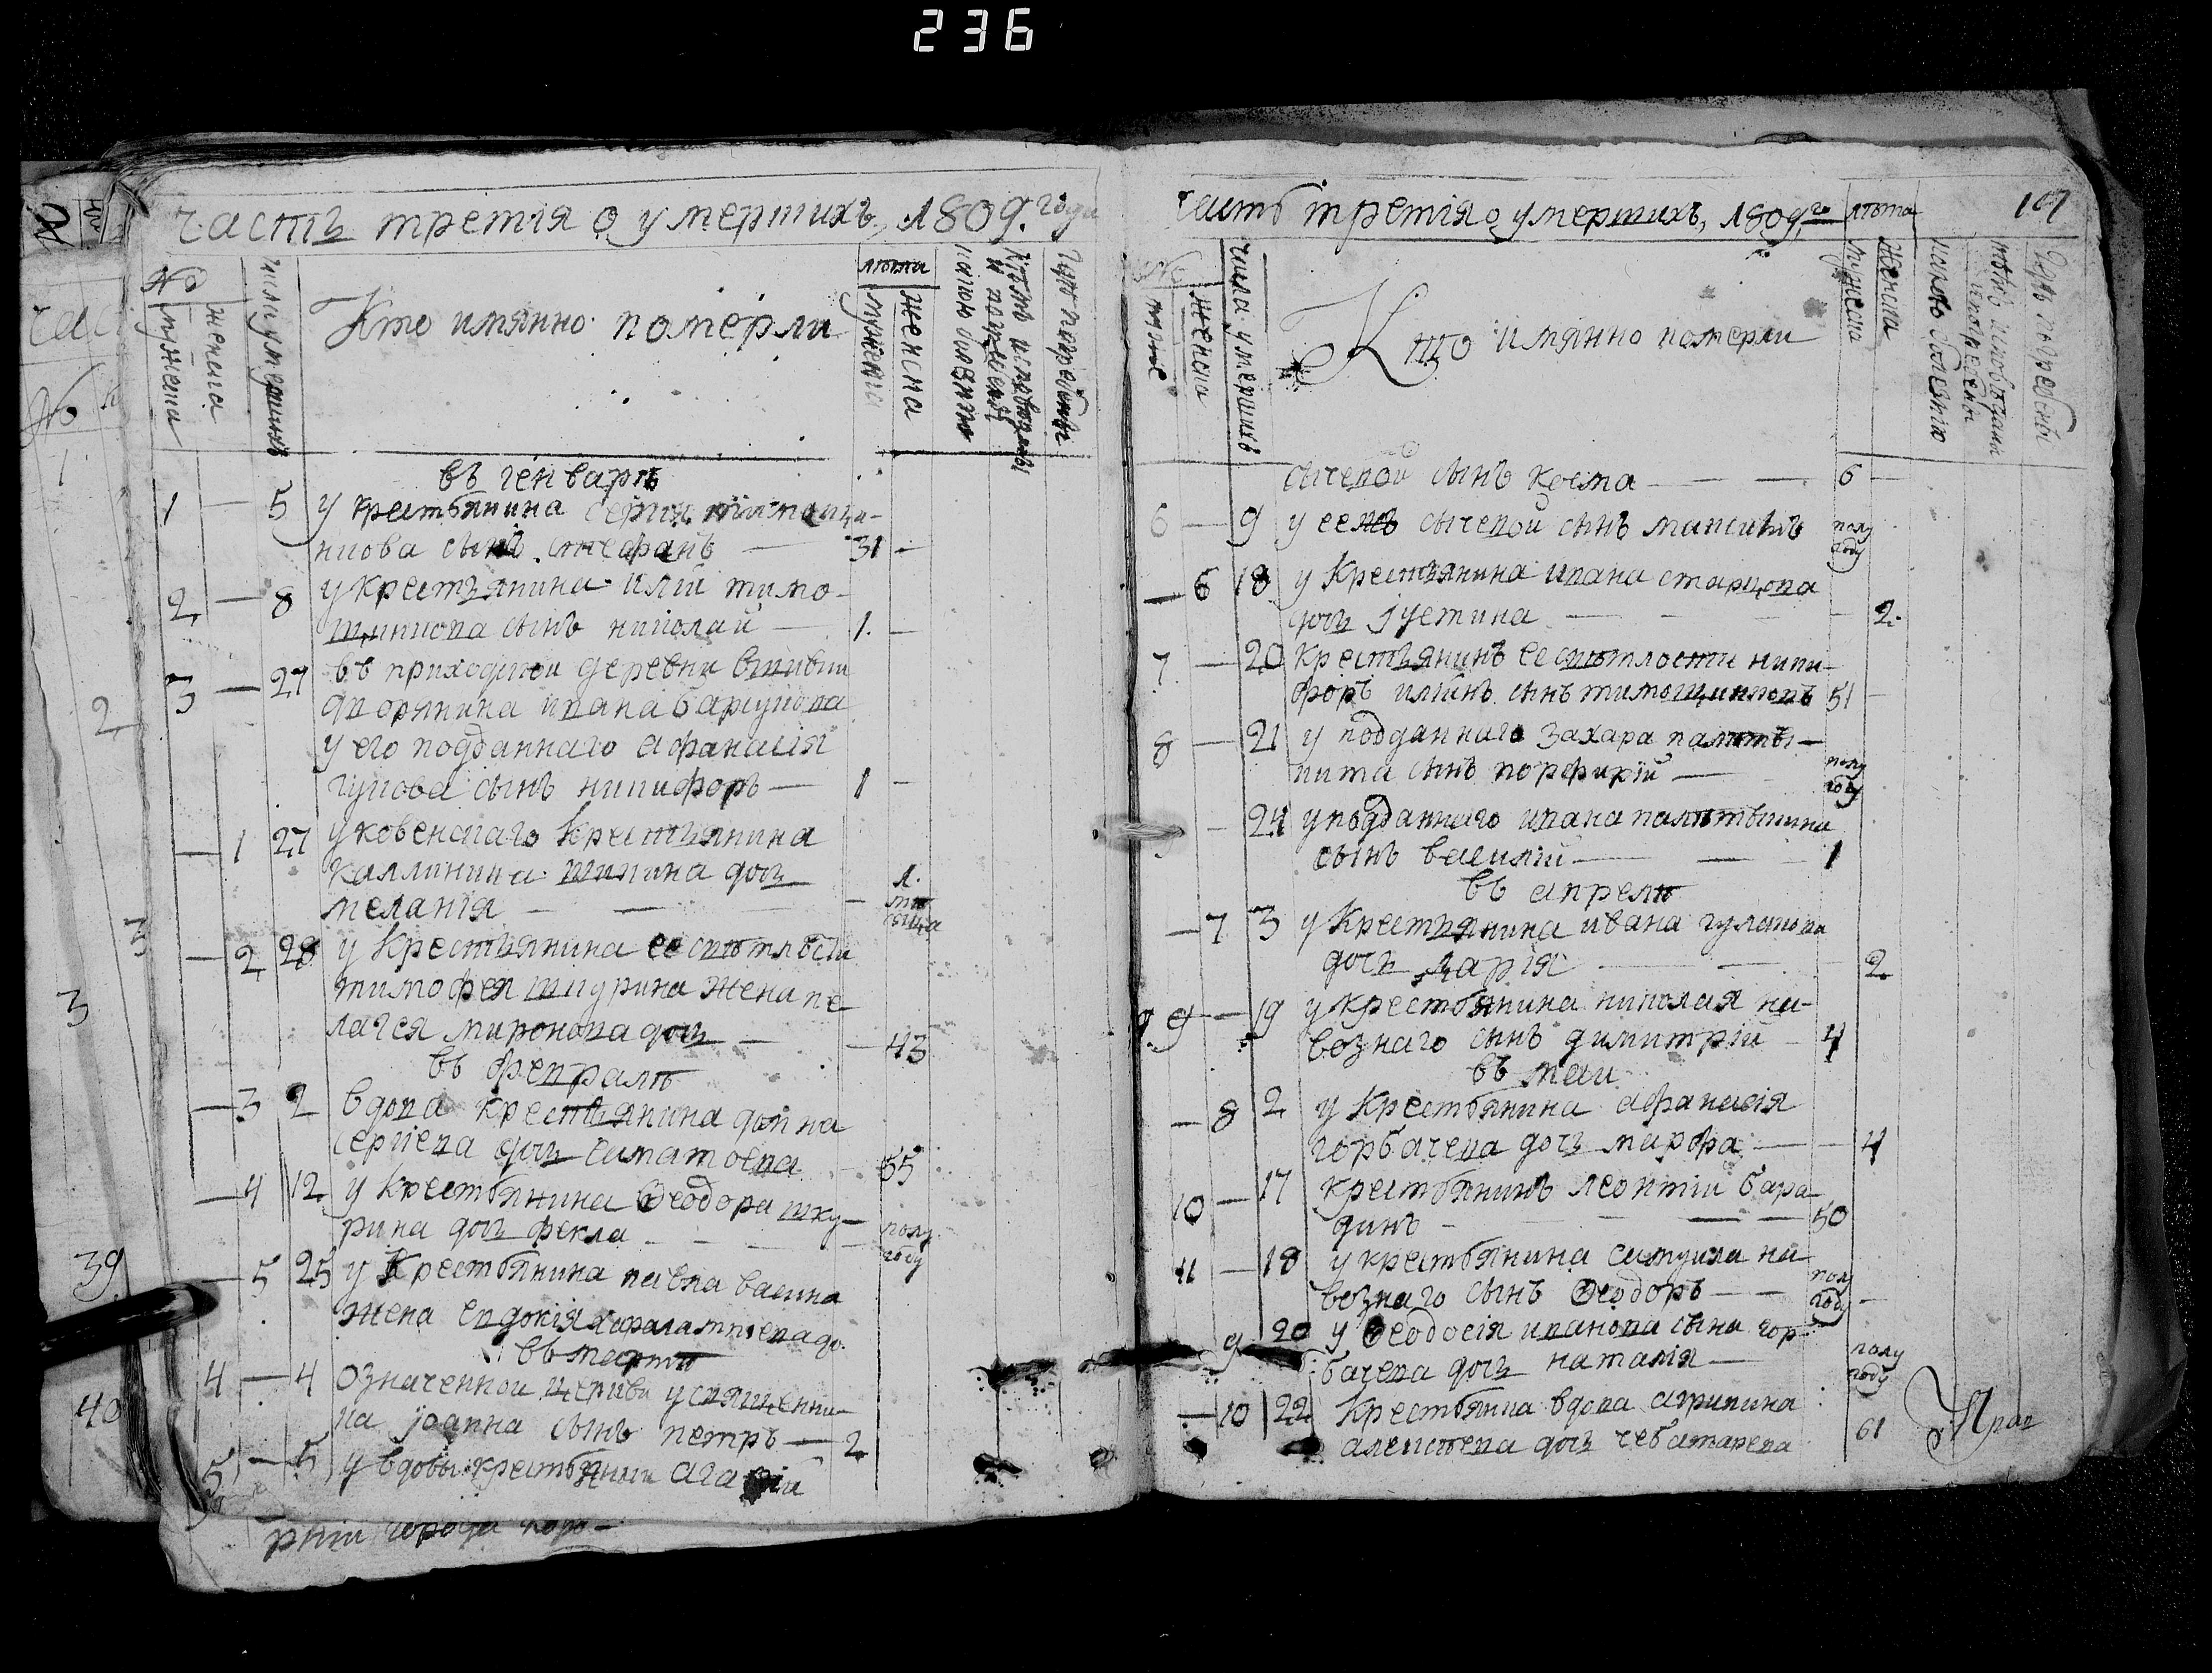 236
часть третія о умершихъ, 1809. года
№
мужеска
женска
числа умершихъ
Кто имянно померли
лѣта
мужеска
женска
какою болѣзнію
кѣмъ исповѣданы
и погребены
гдѣ погребены
въ генварѣ
1 — 5 у крестьянина
сынъ стефанъ — 31 —
2 — 8 у крестьянина иліи тимо-
щинкова сынъ николай — 1. —
3 — 27 въ приходской деревни
дворянина ивана
у его подданнаго афанасія
гукова сынъ никифоръ — 1 —
— 1 27 у ковенскаго крестьянина
каллиника шикина дочь
меланія — — 1.
мѣ
сяца
— 2 28 у крестьянина ее свѣтлости
тимофея шкурина жена пе
лагея миронова дочь — — 43
въ февралѣ
— 3 2 вдова крестьянина домна
сергіева дочь — 55
— 4 12 у крестьянина Ѳеодора шку—
рина дочь фекла — полу
году
— 5 25 у крестьянина павла васина
жена евдокія харалампіева до.
въ мартѣ
4 — 4 означенной церкви у священни—
ка іоанна сынъ петръ — 2
5 — 5 у вдовы крестьянки
рнiи города
часть третія о умершихъ, 1809го
лѣта
107
№
муже
женска
числа умершихъ
Кто имянно померли
мужеска
женска
какою болѣзнію
кѣмъ исповѣданы
и погребены
гдѣ погребены
сычевой сынъ косма — — — 6 —
6 — 9 у сей же сычевой сынъ максимъ полу
году
— 6 18 у крестьянина ивана старцова
дочь іустина — — — 2.
7 — 20 крестьянинъ ее свѣтлости ники-
форъ илiинъ сынъ тимощинковъ 51 —
8 — 21 у подданнаго захара
сынъ порфирій — полу
году
— 24 у подданнаго ивана
сынъ василій — — 1
въ апрелѣ
— 7 3 у крестьянина ивана гулакова
дочь марія — — 2
9 — 19 у крестьянина николая на-
возного сынъ димитрій — 4
въ маи
— 8 2 у крестьянина афанасія
горбачева дочь марфа — — 4
10 — 17 крестьянинъ леонтій бара
динъ — — — 50
11 — 18 у крестьянина самуила на
возного сынъ Ѳеодоръ — — полу
году —
9 20 у Ѳеодосія иванова сына гор-
бачева дочь наталія — полу
году
— 10 22 крестьянка вдова агрипина
алексѣева дочь чеботарева 61